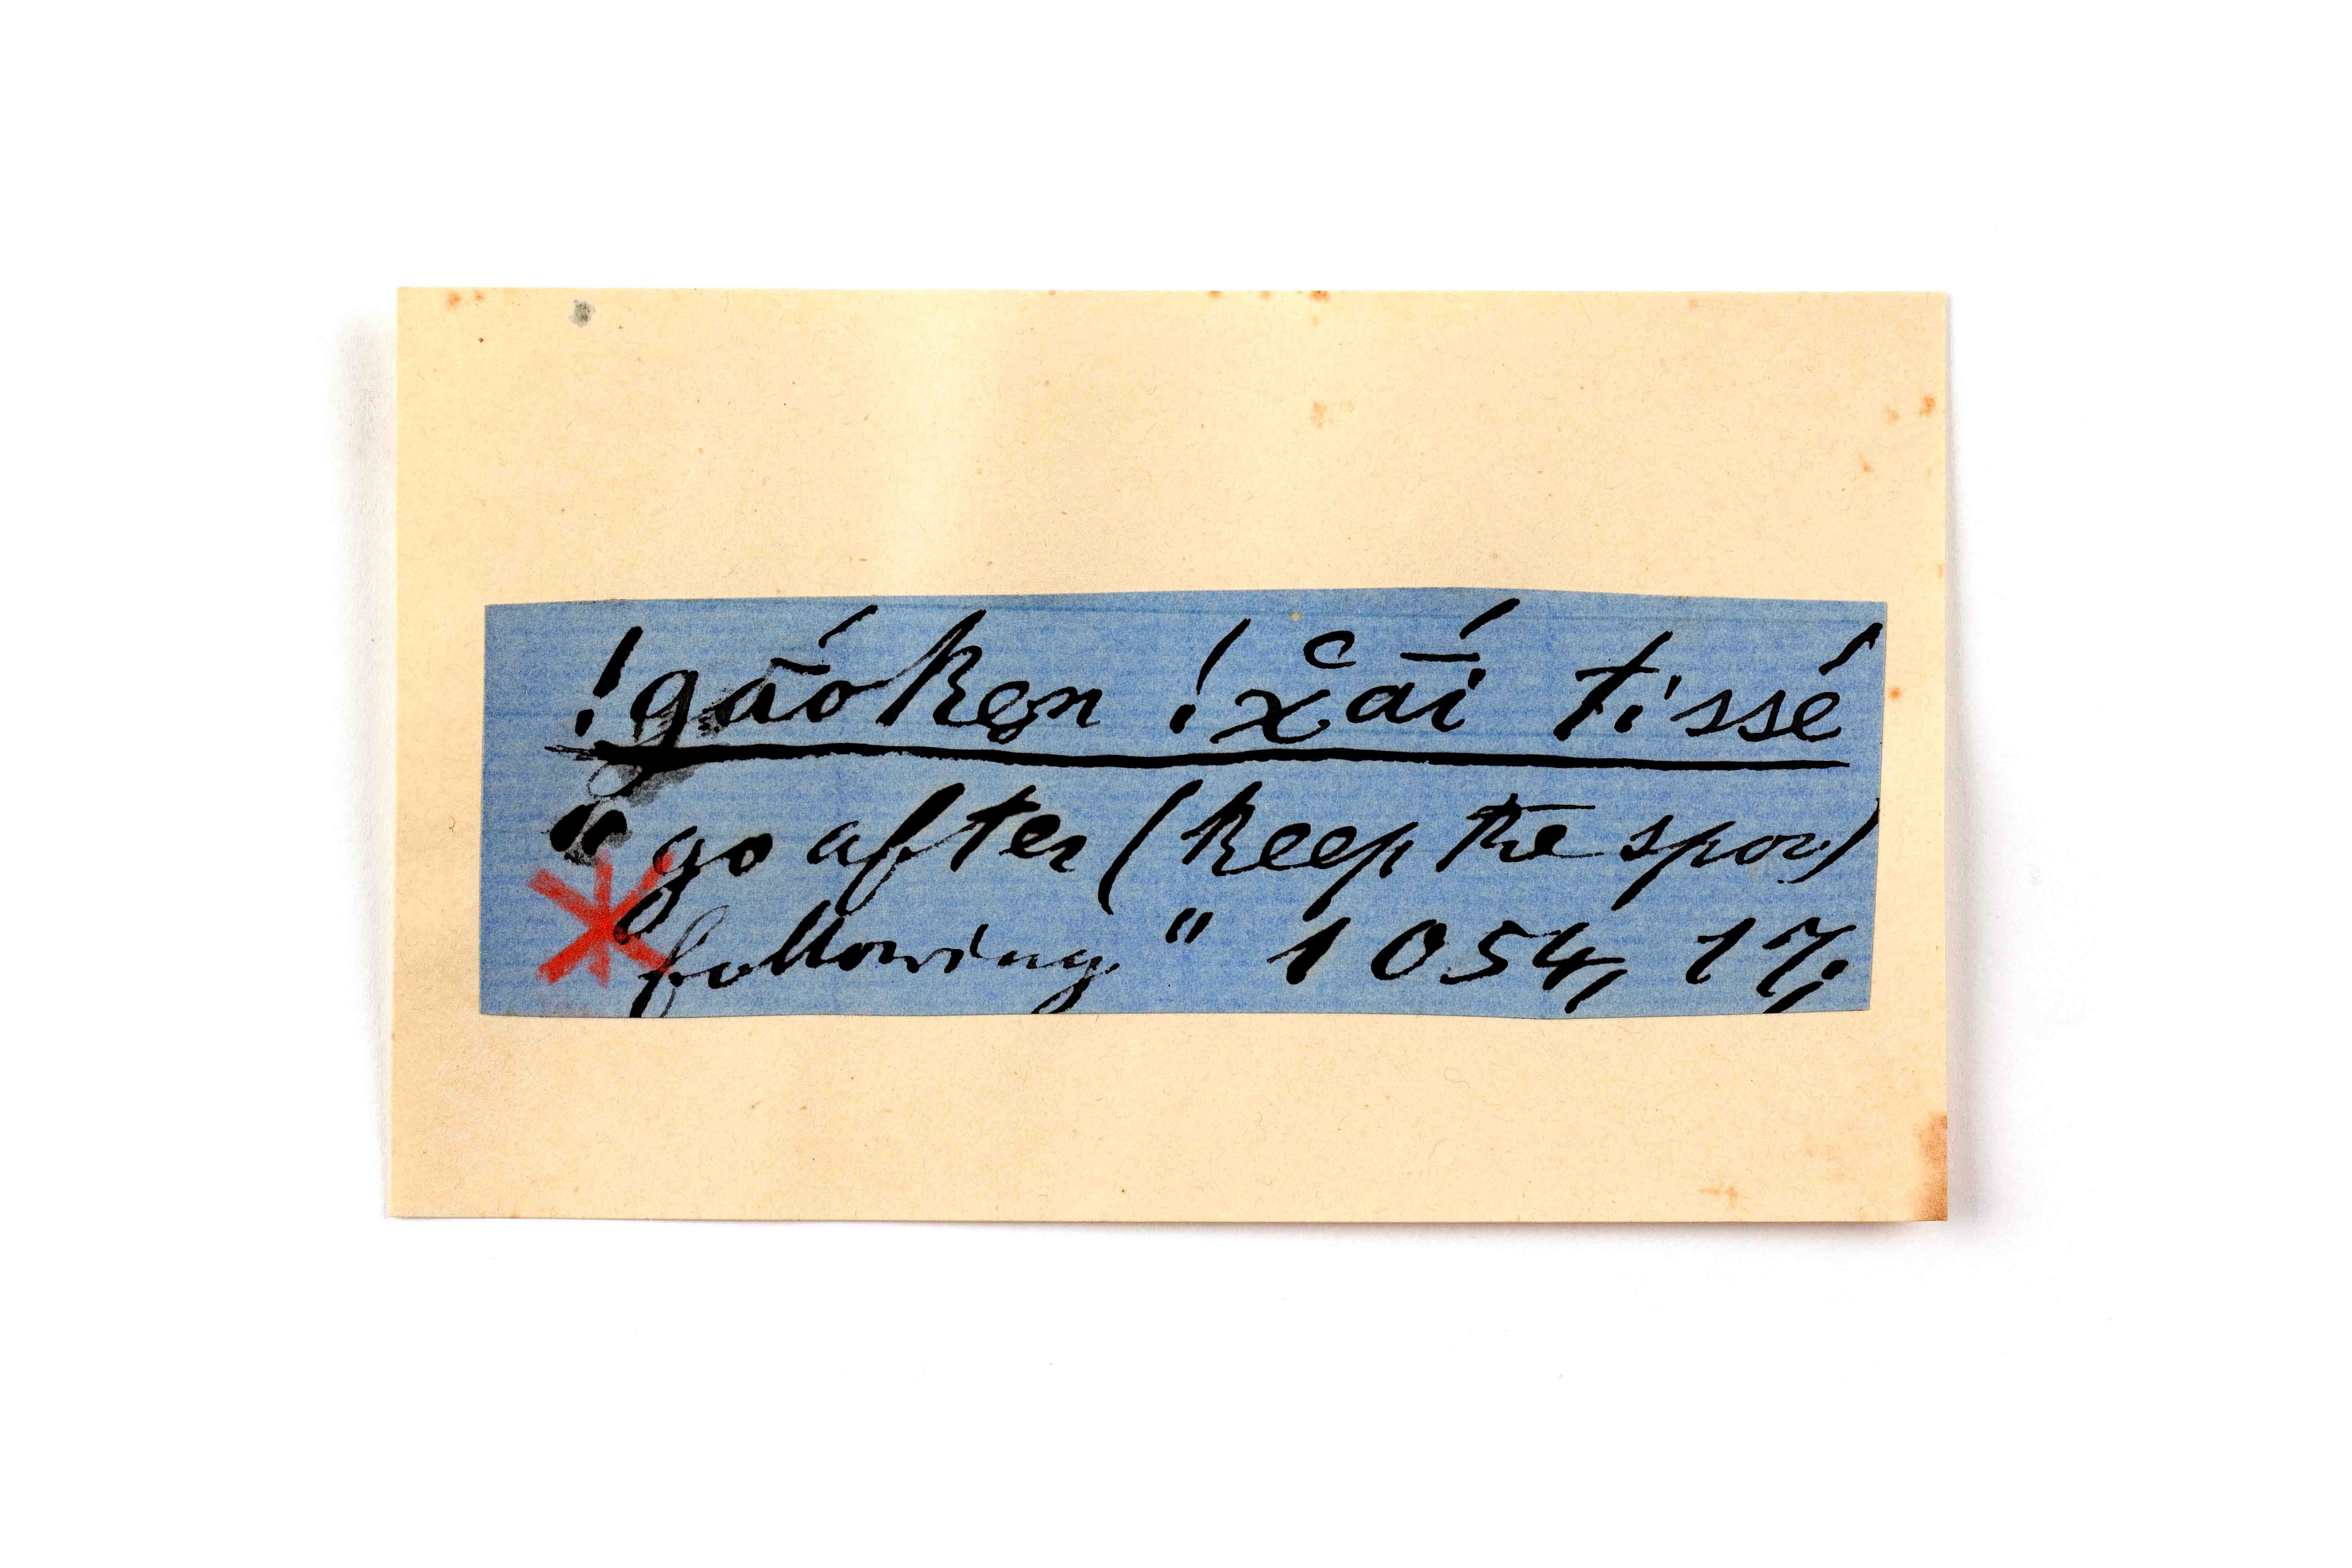 !gāóken !x̆āí ti'ssé
" go after (keep the spoor)
following " 1054, 17.